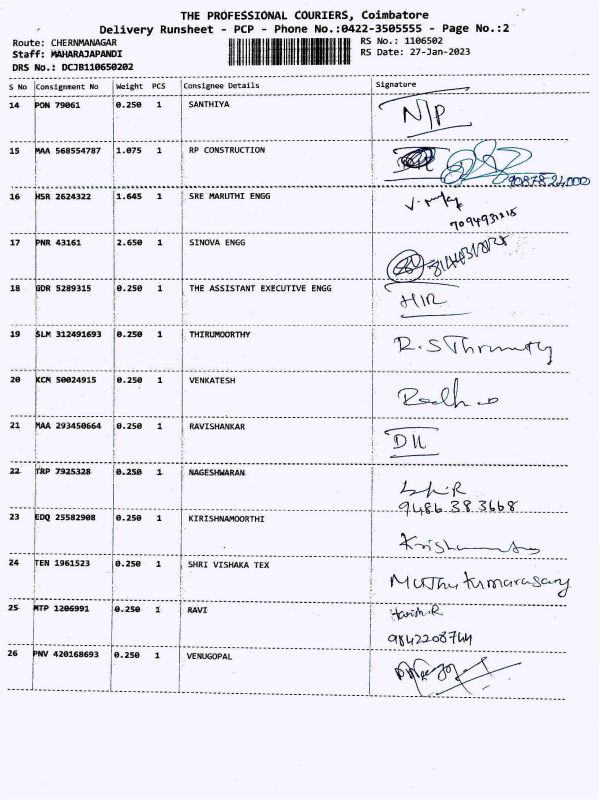 THE PROFESSIONAL COURIERS, Coimbatore
Delivery Runsheet - PCP - Phone No.:0422-3505555 - Page No.:2
Route: CHERNMANAGAR RS No.: 1106502
Staff: MAHARAJAPANDI RS Date: 27-Jan-2023
DRS No.: DCJB110650202
S No Consignment No Weight PCS Consignee Details Signature
14 PON 79061 0.250 1 SANTHIYA N/P
15 MAA 568554787 1.075 1 RP CONSTRUCTION
16 HSR 2624322 1.645 1 SRE MARUTHI ENGG
7094931215
17 PNR 43161 2.650 1 SINOVA ENGG
18 GDR 5289315 0.250 1 THE ASSISTANT EXECUTIVE ENGG
19 SLM 312491693 0.250 1 THIRUMOORTHY
20 KCM 50024915 0.250 1 VENKATESH
21 MAA 293450664 0.250 1 RAVISHANKAR
22 TRP 7925328 0.250 1 NAGESHWARAN
9486 38 3668
23 EDQ 25582908 0.250 1 KIRISHNAMOORTHI
24 TEN 1961523 0.250 1 SHRI VISHAKA TEX Muthukumarasamy
25 MTP 1206991 0.250 1 RAVI Harish.R
9842208744
26 PNV 420168693 0.250 1 VENUGOPAL